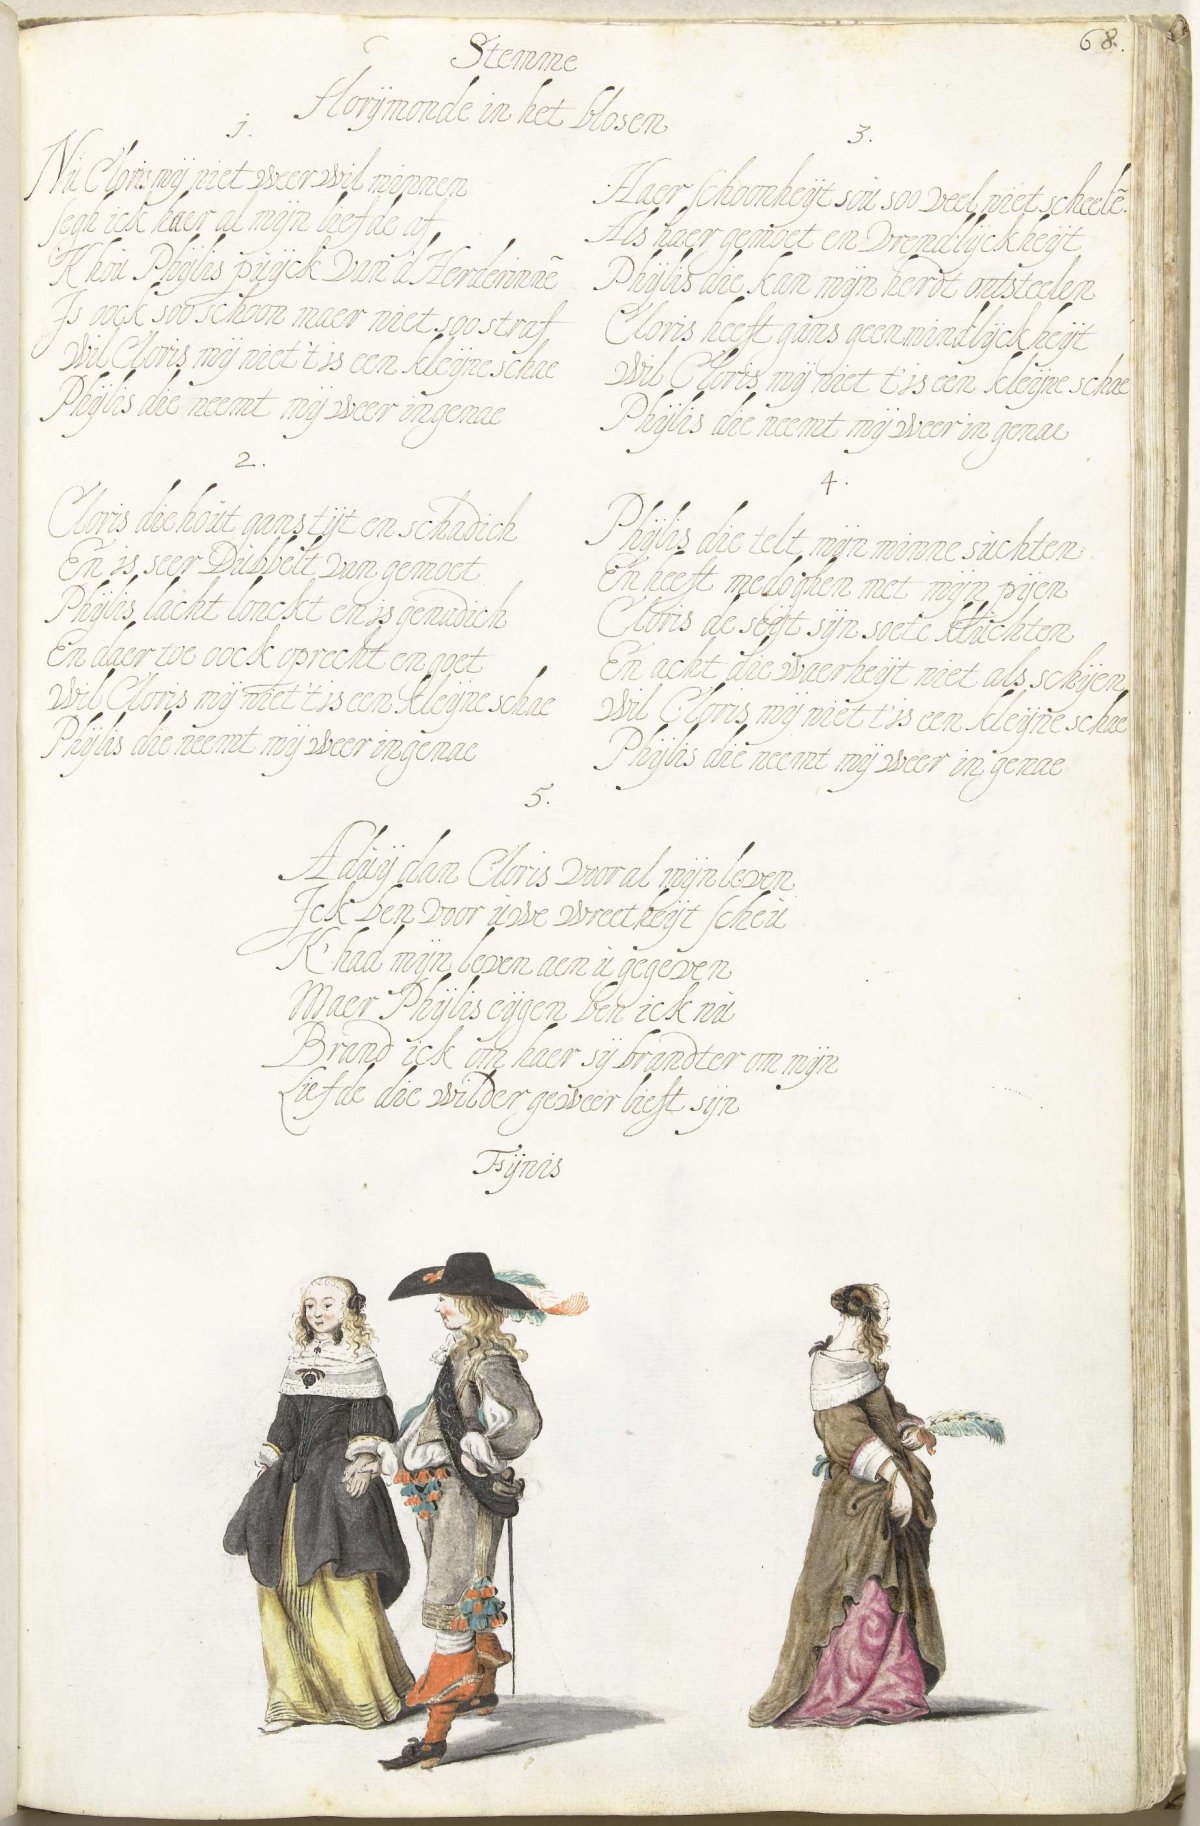 68.
Stemme
florijmonde in het blosen
1.
Nu Cloris mij niet weer wil minnen
segh ick haer al mijn liefde af
K hou Phijlis puijck van d Herderinnē
Is oock soo schoon maer niet soo straf
Wil Cloris mij niet 't is een kleijne schae
Phijlis die neemt mij weer in genae
2.
Cloris die hout gans tijt en schadich
En is seer Dubbelt van gemoet
Phijlis lacht lonckt en is genadich
En daer toe oock oprecht en goet
Wil Cloris mij niet 't is een kleijne schae
Phijlis die neemt mij weer in genae
3.
Haer schoonheijt sou soo veel niet scheelē.
Als haer gemoet en vrendlijckheijt
Phijlis die kan mijn herdt ontsteelen
Cloris heeft gans geen mindlijckheijt
Wil Cloris mij niet t'is een kleijne schae
Phijlis die neemt mij weer in genae
4.
Phijlis die telt mijn minne suchten
En heeft medoghen met mijn pijen
Cloris de seijt sijn soete kluchten
En acht die waerheijt niet als schijen
Wil Cloris mij niet t'is een kleijne schae
Phijlis die neemt mij weer in genae
5.
Aduij dan Cloris voor al mijn leven
Ick ben voor uwe wreetheijt scheu
K' had mijn leven aen u gegeven
Maer Phijlis eijgen ben ick nu
Brand ick om haer sij brandter om mijn
Liefde die wilder geweer lieft sijn
Fijnis